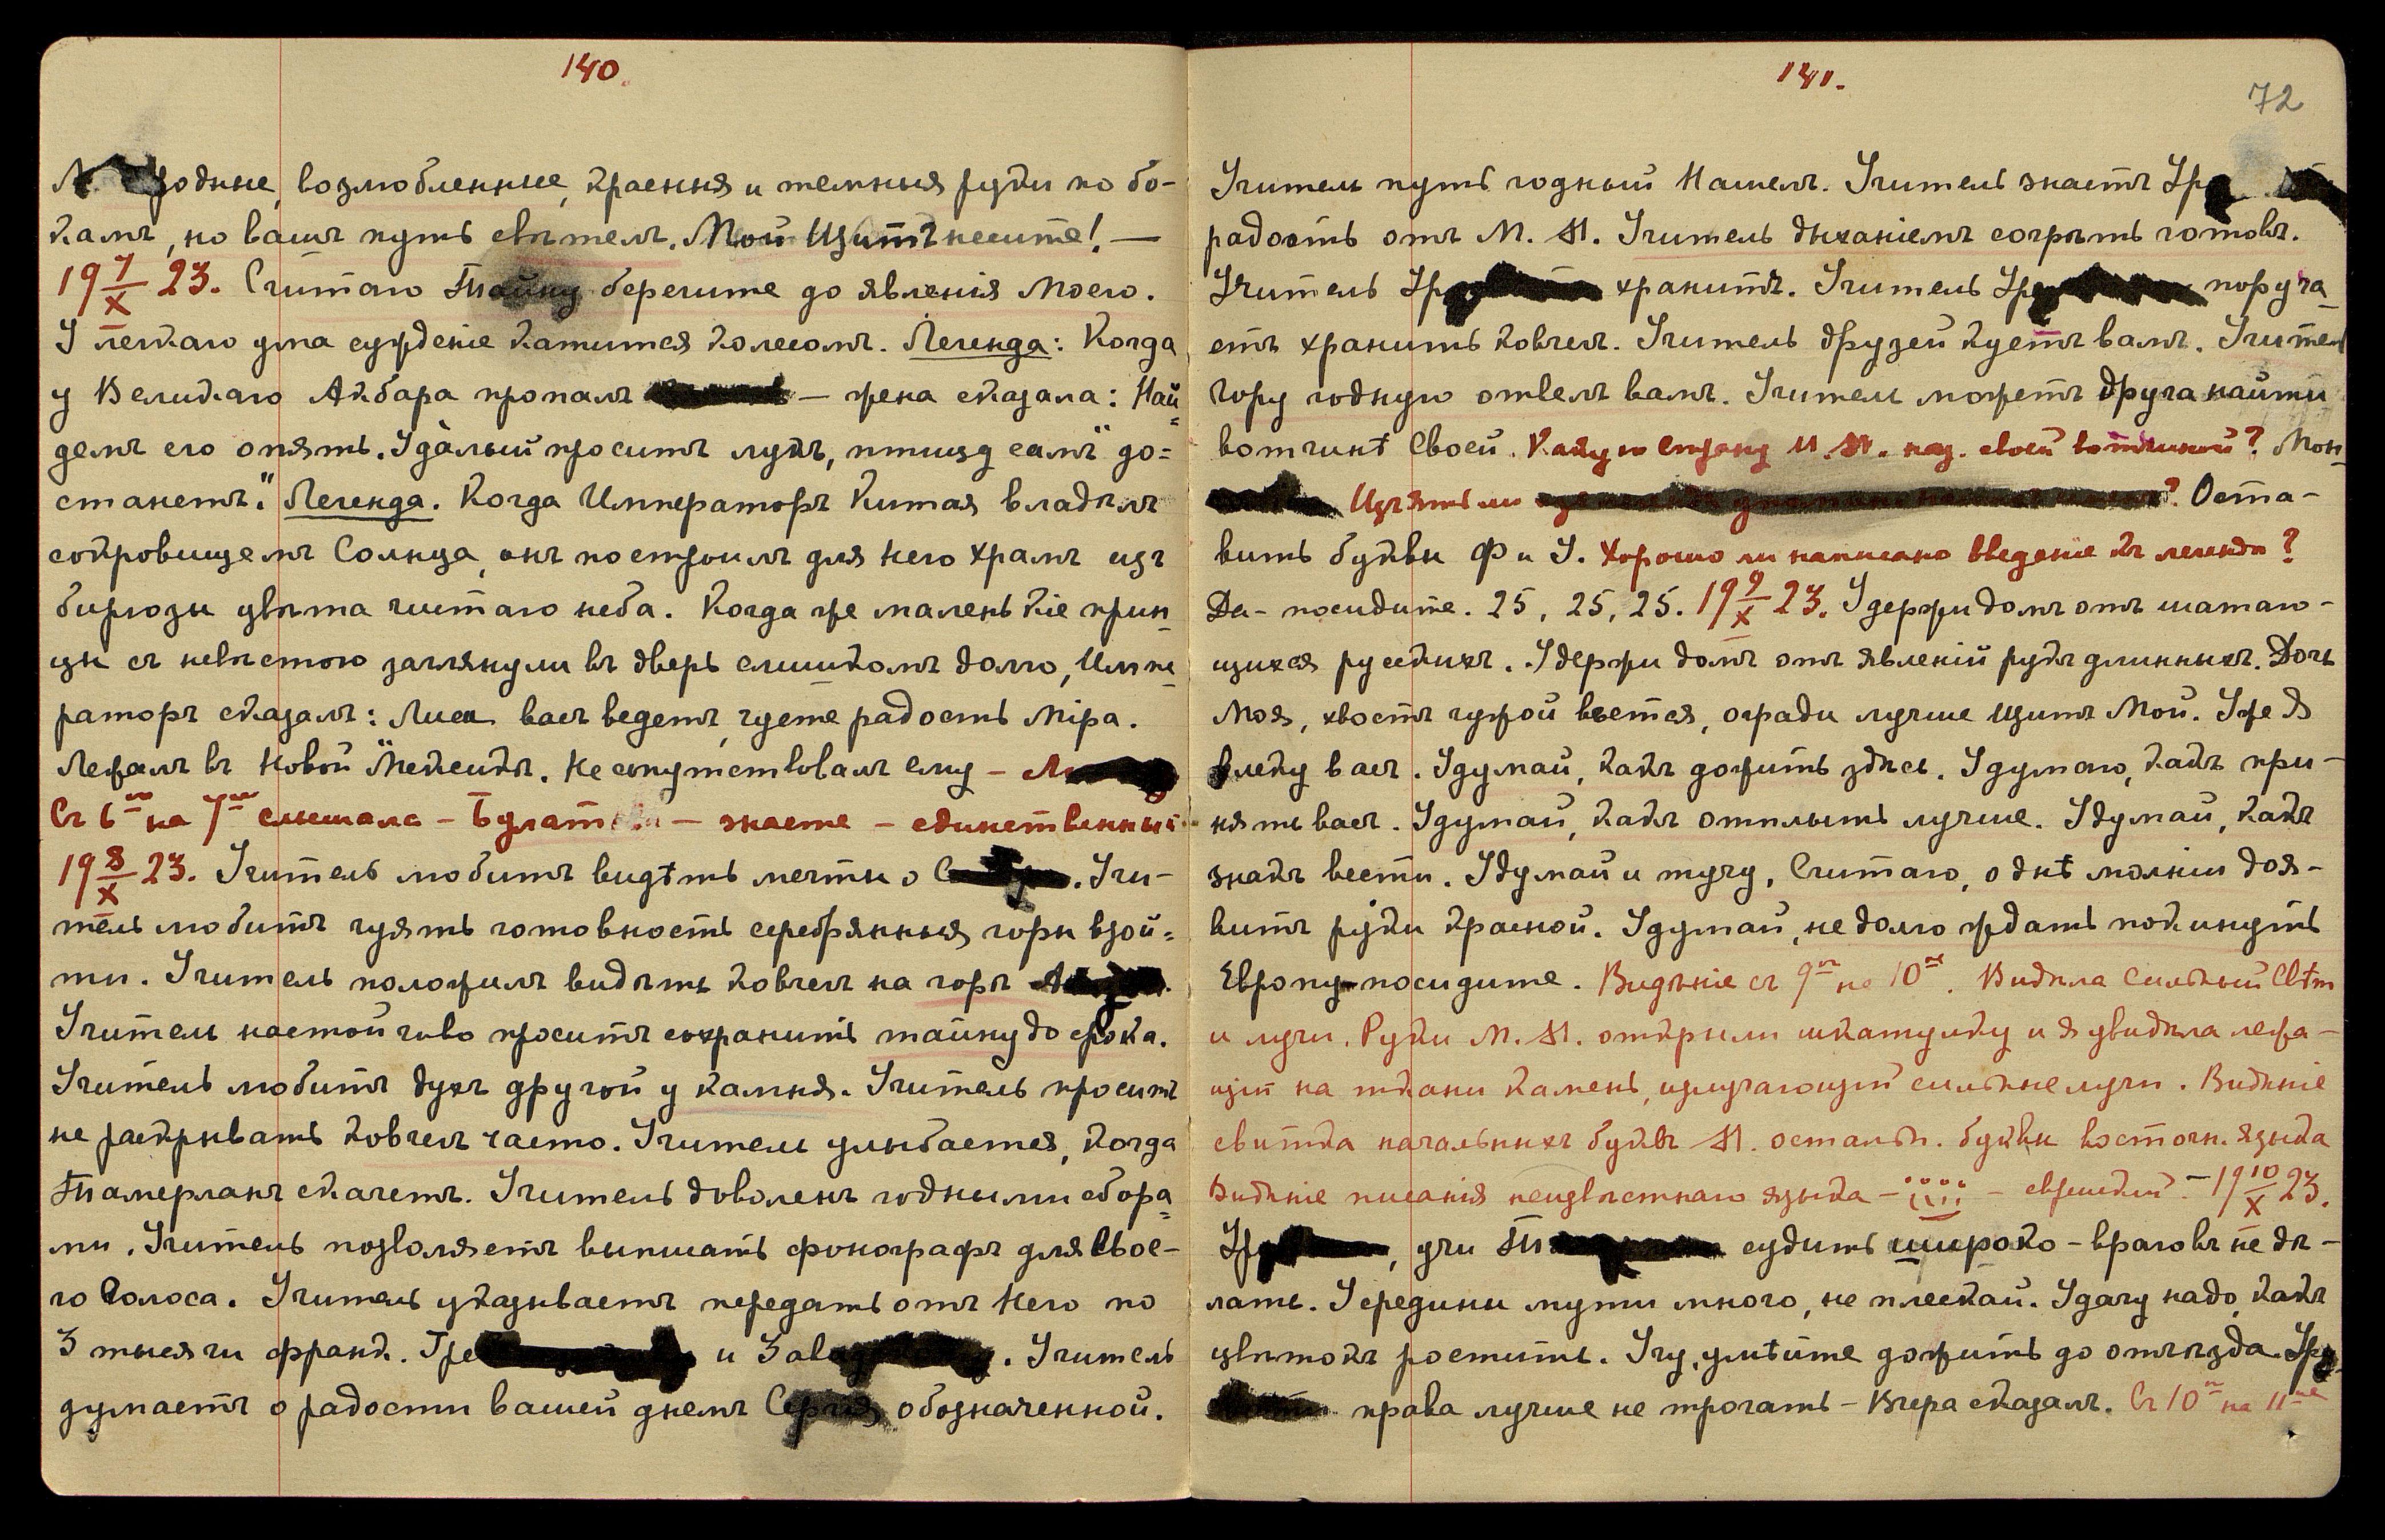 140.
родные, возлюбленные, красныя и темныя руки по бо-
камъ, но вашъ путь свѣтелъ. Мой Щитъ несите! —
19 7/X 23. Считаю Тайну берегите до явленія Моего.
У легкаго ума сужденіе катится колесомъ. Легенда: Когда
у Великаго Акбара пропалъ — жена сказала: Най=
демъ его опять. Удалый проситъ лукъ, птицу самъ до=
станетъ". Легенда. Когда Императоръ Китая владѣлъ
сокровищемъ Солнца, онъ построилъ для него храмъ изъ
бирюзы цвѣта чистаго неба. Когда же маленькіе прин-
цы съ невѣстою заглянули въ дверь слишкомъ долго, Импе-
раторъ сказалъ: Лиса васъ ведетъ, чуете радость Міра.
Лежалъ въ Новой Мексикѣ. Не сопутствовалъ ему —
Съ 6го на 7ое слышала — Булат — знаете — единственный
19 8/X 23. Учитель любитъ видѣть мечты о. Учи-
тель любитъ чуять готовность серебрянныя горы взой=
ти. Учитель положилъ видѣть ковчегъ на горѣ
Учитель настойчиво проситъ сохранить тайну до срока.
Учитель любитъ духъ другой у камня. Учитель проситъ
не раскрывать ковчегъ часто. Учитель улыбается, когда
Тамерланъ скачетъ. Учитель доволенъ годными сбора=
ми. Учитель позволяетъ выписать фонографъ для Свое-
го Голоса. Учитель указываетъ передать отъ Него по
3 тысячи франк. Гре и Зав. Учитель
думаетъ о радости вашей днемъ Сергія обозначенной.
141.
72
Учитель путь годный Нашелъ. Учитель знаетъ Ур
радость отъ М. М. Учитель дыханіемъ согрѣть готовъ.
Учитель Ур хранитъ. Учитель Ур поруча-
етъ хранить ковчегъ. Учитель друзей куетъ вамъ. Учитель
Гору годную отвелъ вамъ. Учитель можетъ друга найти
вотчинѣ Своей. Какую страну М. М. наз. своей вотчиной? Мон-
Изъять ли ? Оста-
вить буквы Ф и У. Хорошо ли написано введеніе къ легендѣ?
Да - посидите. 25, 25, 25. 19 9/X 23. Удержи домъ отъ шатаю-
щихся русскихъ. Удержи домъ отъ явленій рукъ длинныхъ. Дочь
Моя, хвостъ чужой вьется, огради лучше Щитъ Мой. Уже Я
влеку васъ. Удумай, какъ дожить здѣсь. Удумаю, какъ при-
нять васъ. Удумай, какъ отплыть лучше. Удумай, какъ
знакъ вести. Удумай и тучу, Считаю, о днѣ молніи доя-
витъ руки красной. Удумай, не долго ждать покинуть
Европу — посидите. Видѣніе съ 9го на 10ое. Видѣла Сильный Свѣт
и лучи. Руки М. М. открыли шкатулку и я увидѣла лежа-
щій на ткани камень, излучающій сильные лучи. Видѣніе
свитка начальныхъ буквъ М. остальн. буквы восточн. языка
Видѣніе писанія неизвѣстнаго языка — — еврейскій. — 19 10/X 23.
Ур, учи судить широко — враговъ не дѣ-
лать. У середины мути много, не плескай. Удачу надо, какъ
цвѣтокъ роститъ. Учу, умѣйте дожить до отъѣзда. Ур
права лучше не трогать — Вчера сказалъ. Съ 10го на 11ое